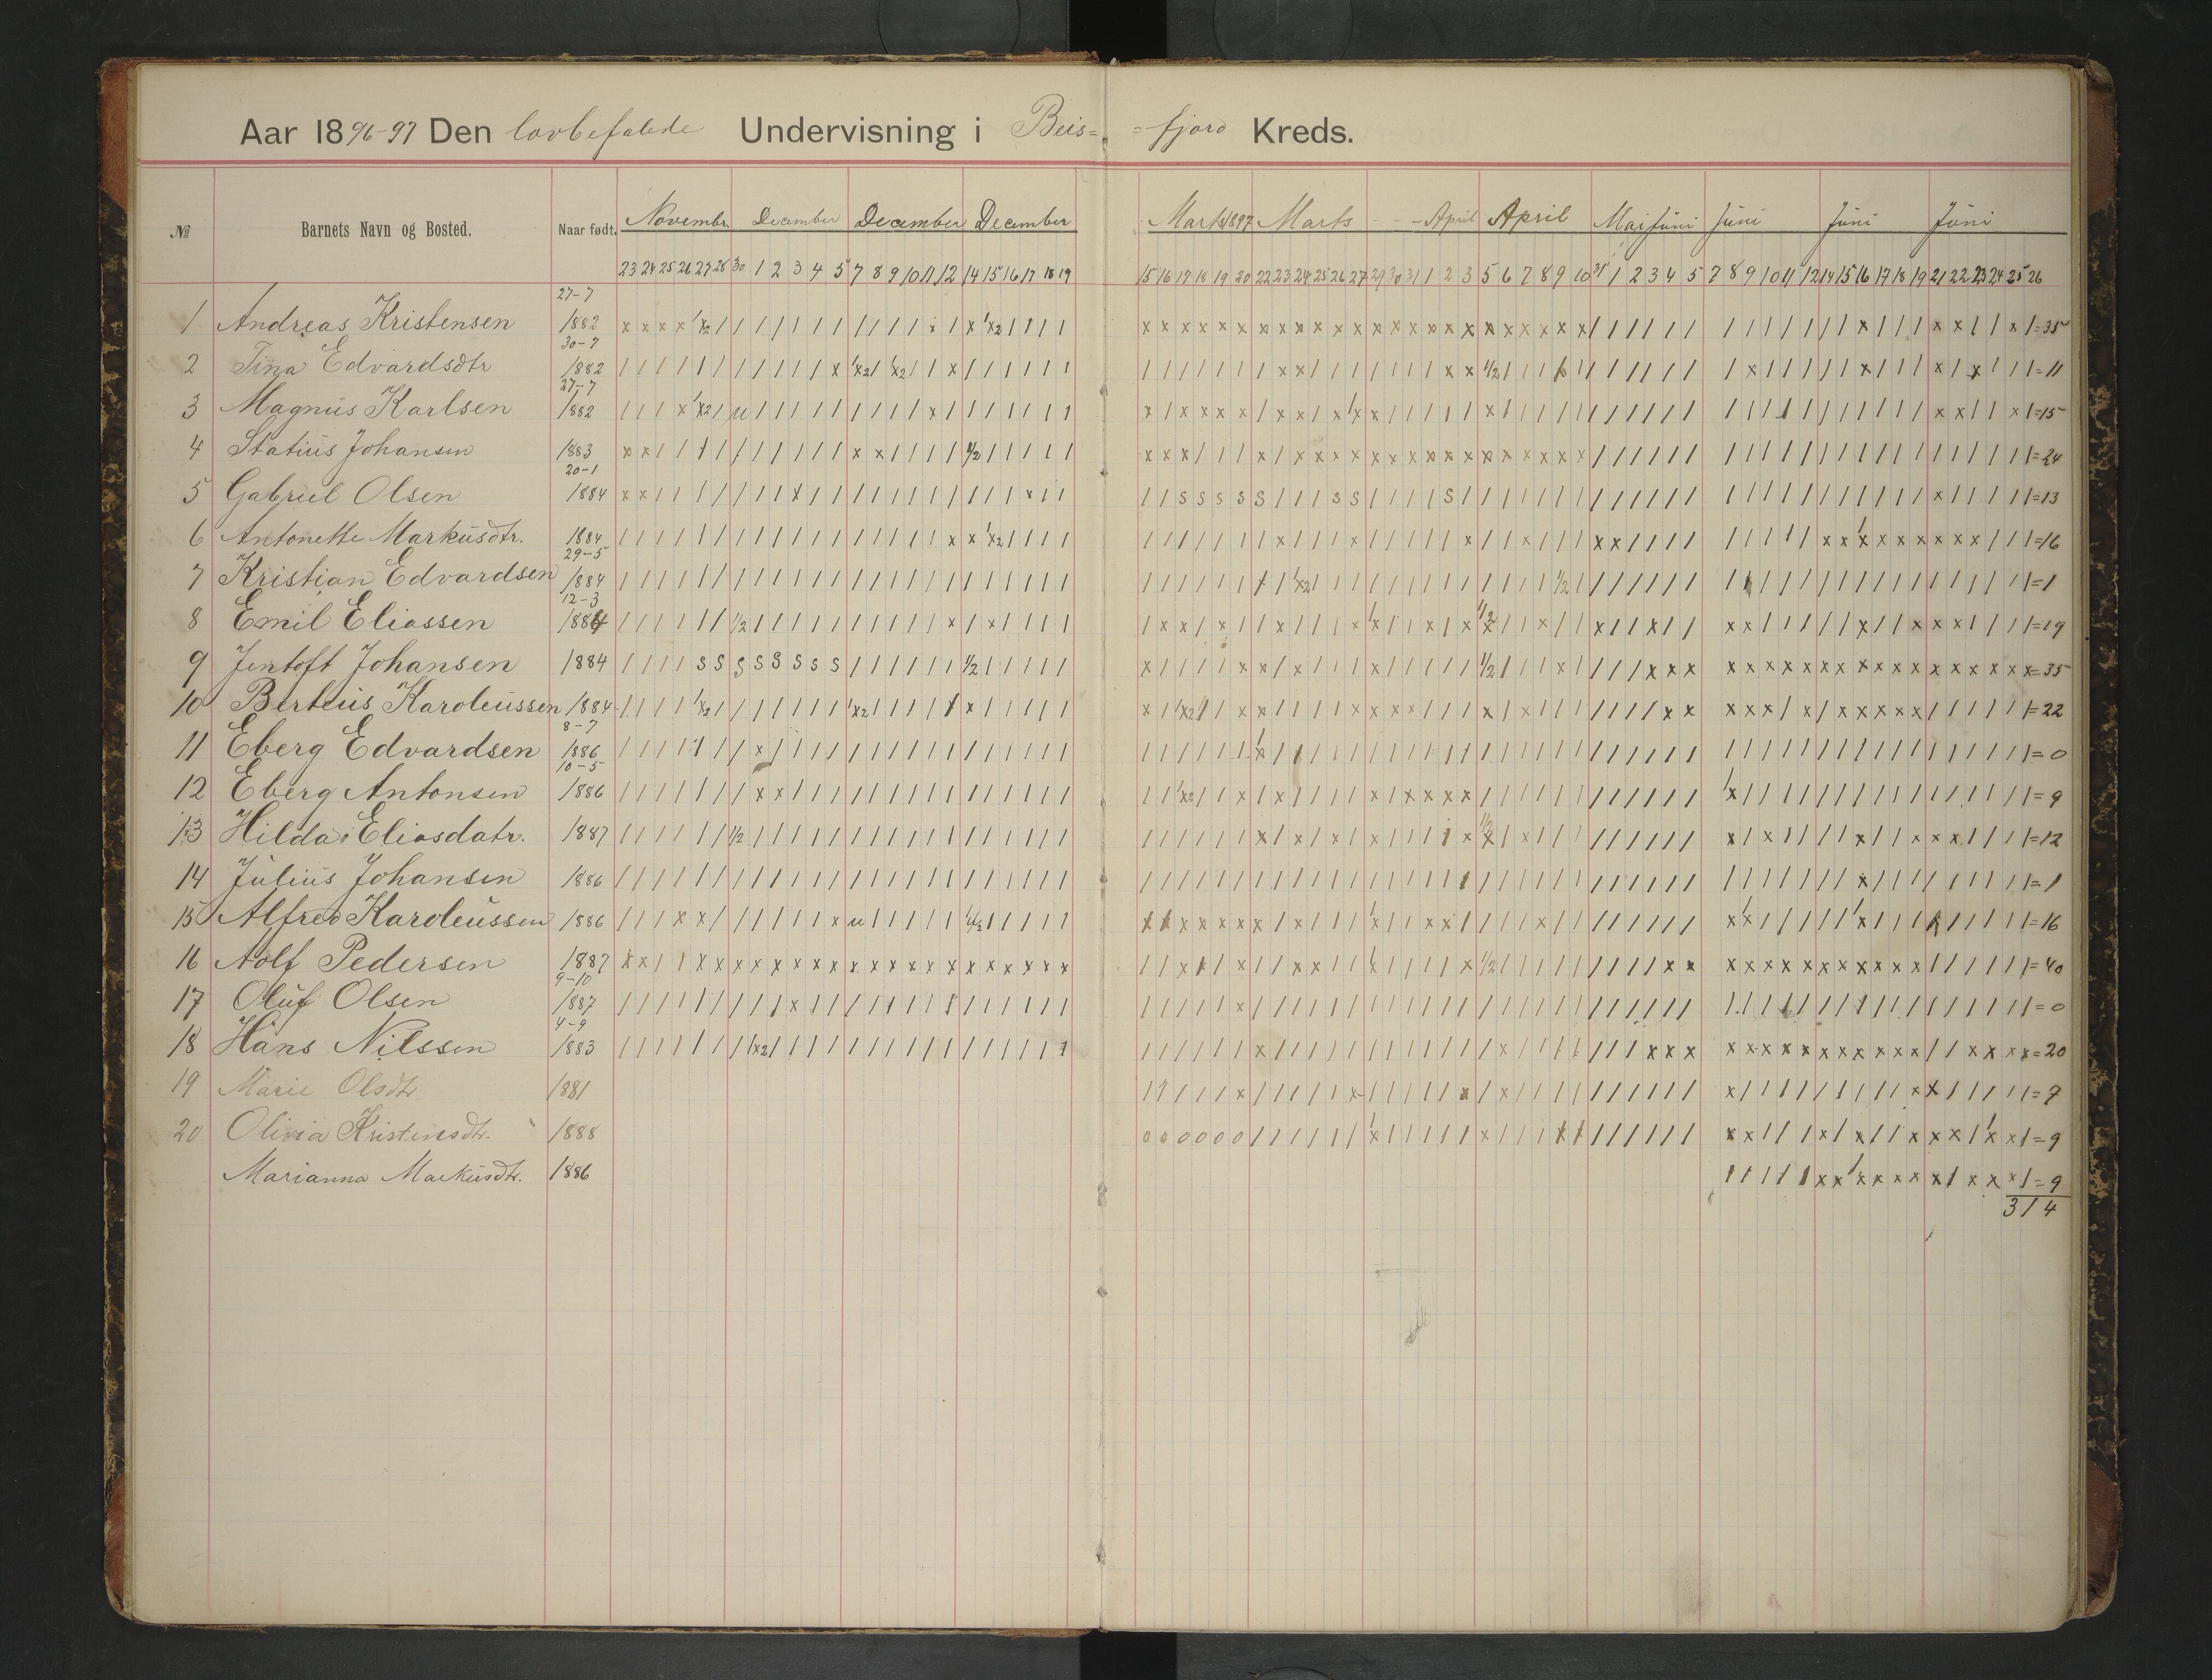 Aar 1896-97 Den lovbefalede Undervisning i Beis= =fjord Kreds.
№ Barnets Navn og Bosted. Naar født. Novembr. December December December Marts 1897 Marts - - - April April Mai Juni Juni Juni Juni
23 24 25 26 27 28 30 1 2 3 4 5 7 8 9 10 11 12 14 15 16 17 18 19 15 16 17 18 19 20 22 23 24 25 26 27 29 30 31 1 2 3 5 6 7 8 9 10 31 1 2 3 4 5 7 8 9 10 11 12 14 15 16 17 18 19 21 22 23 24 25 26
27-7
1 Andreas Kristensen 1882 =35
30-7
2 Tina Edvardsdtr 1882 =11
27-7
3 Magnus Karlsen 1882 =15
4 Statius Johansen 1883 =24
20-1
5 Gabriel Olsen 1884 =13
6 Antonette Markusdtr. 1884 =16
29-5
7 Kristian Edvardsen 1884 =1
12-3
8 Emil Eliassen 1884 =19
9 Jentoft Johansen 1884 =35
10 Berteus Karoleussen 1884 =22
8-7
11 Eberg Edvardsen 1886 =0
10-5
12 Eberg Antonsen 1886 =9
13 Hilda Eliasdatr. 1887 =12
14 Julius Johansen 1886 =1
15 Alfred Karoleussen 1886 =16
16 Adolf Pedersen 1887 =40
9-10
17 Oluf Olsen 1887 =0
4-9
18 Hans Nilssen 1883 =20
19 Marie Olsdtr 1881 =7
20 Olivia Kristensdtr. 1888 =9
Marianna Markusdtr. 1886 =9
314